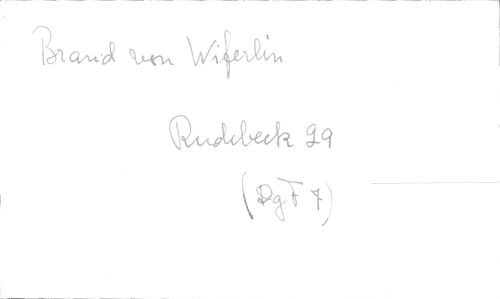 Brand von Wiferlin
Rudebeck 29
(DgF 7)